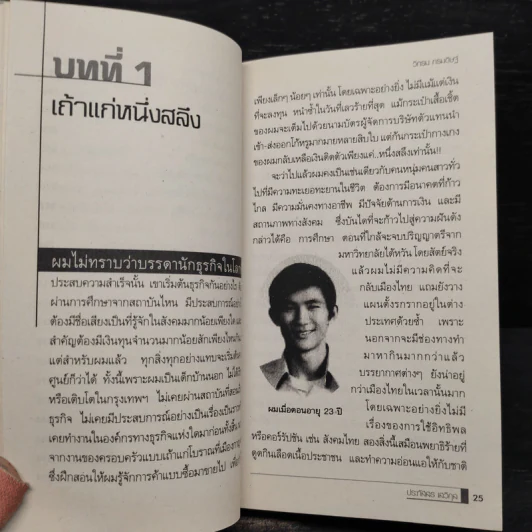 บทที่ 1
เถ้าแก่หนึ่งสลึง
ผมไม่ทราบว่าบรรดานักธุรกิจในโลก
ประสบความสำเร็จนั้น เขาเริ่มต้นธุรกิจกันอย่างไร
ผ่านการศึกษาจากสถาบันไหน มีประสบการณ์
ต้องมีชื่อเสียงเป็นที่รู้จักในสังคมมากน้อยเพียงใด
สำคัญต้องมีเงินทุนจำนวนมากน้อยสักเพียงไหน
แต่สำหรับผมแล้ว ทุกสิ่งทุกอย่างแทบจะเริ่ม
ศูนย์ก็ว่าได้ ทั้งนี้เพราะผมเป็นเด็กบ้านนอก
หรือเติบโตในกรุงเทพฯ ไม่เคยผ่านสถาบัน
ธุรกิจ ไม่เคยมีประสบการณ์อย่างเป็นเรื่องเป็น
เคยทำงานในองค์กรทางธุรกิจแห่งใดมาก่อน
จากงานของครอบครัวแบบเถ้าแก่โบราณที่เมือง
ซึ่งฝึกสอนให้ผมรู้จักการค้าแบบซื้อมาขายไป
วิกรม กรมดิษฐ์
เพียงเล็กๆ น้อยๆ เท่านั้น โดยเฉพาะอย่างยิ่ง ไม่มีแม้แต่เงิน
ที่จะลงทุน หนำซ้ำในวันที่เลวร้ายที่สุด แม้กระเป๋าเสื้อเชิ้ต
ของผมจะเต็มไปด้วยนามบัตรผู้จัดการบริษัทตัวแทนนำ
เข้า-ส่งออกโก้หรูมากมายหลายสิบใบ แต่ก้นกระเป๋ากางเกง
ของผมกลับเหลือเงินติดตัวเพียงแค่..หนึ่งสลึงเท่านั้น!!
จะว่าไปแล้วผมคงเป็นเช่นเดียวกับคนหนุ่มคนสาวทั่ว
ไปที่มีความทะเยอทะยานในชีวิต ต้องการมีอนาคตที่ก้าว
ไกล มีความมั่นคงทางอาชีพ มีปัจจัยด้านการเงิน และมี
สถานภาพทางสังคม ซึ่งบันไดที่จะก้าวไปสู่ความฝันดัง
กล่าวได้คือ การศึกษา ตอนที่ใกล้จะจบปริญญาตรีจาก
มหาวิทยาลัยไต้หวัน โดยสัตย์จริง
แล้วผมไม่มีความคิดที่จะ
กลับเมืองไทย แถมยังวาง
แผนตั้งรกรากอยู่ในต่าง
ประเทศด้วยซ้ำ เพราะ
นอกจากจะมีช่องทางทำ
มาหากินมากกว่าแล้ว
บรรยากาศต่างๆ ยังน่าอยู่
กว่าเมืองไทยในเวลานั้นมาก
โดยเฉพาะอย่างยิ่งไม่มี
เรื่องของการใช้อิทธิพล
ผมเมื่อตอนอายุ 23 ปี
หรือคอร์รัปชัน เช่น สังคมไทย สองสิ่งนี้เสมือนพยาธิร้ายที่
ดูดกินเลือดเนื้อประชาชน และทำความอ่อนแอให้กับชาติ
ประภัสสร เสวิกุล
25